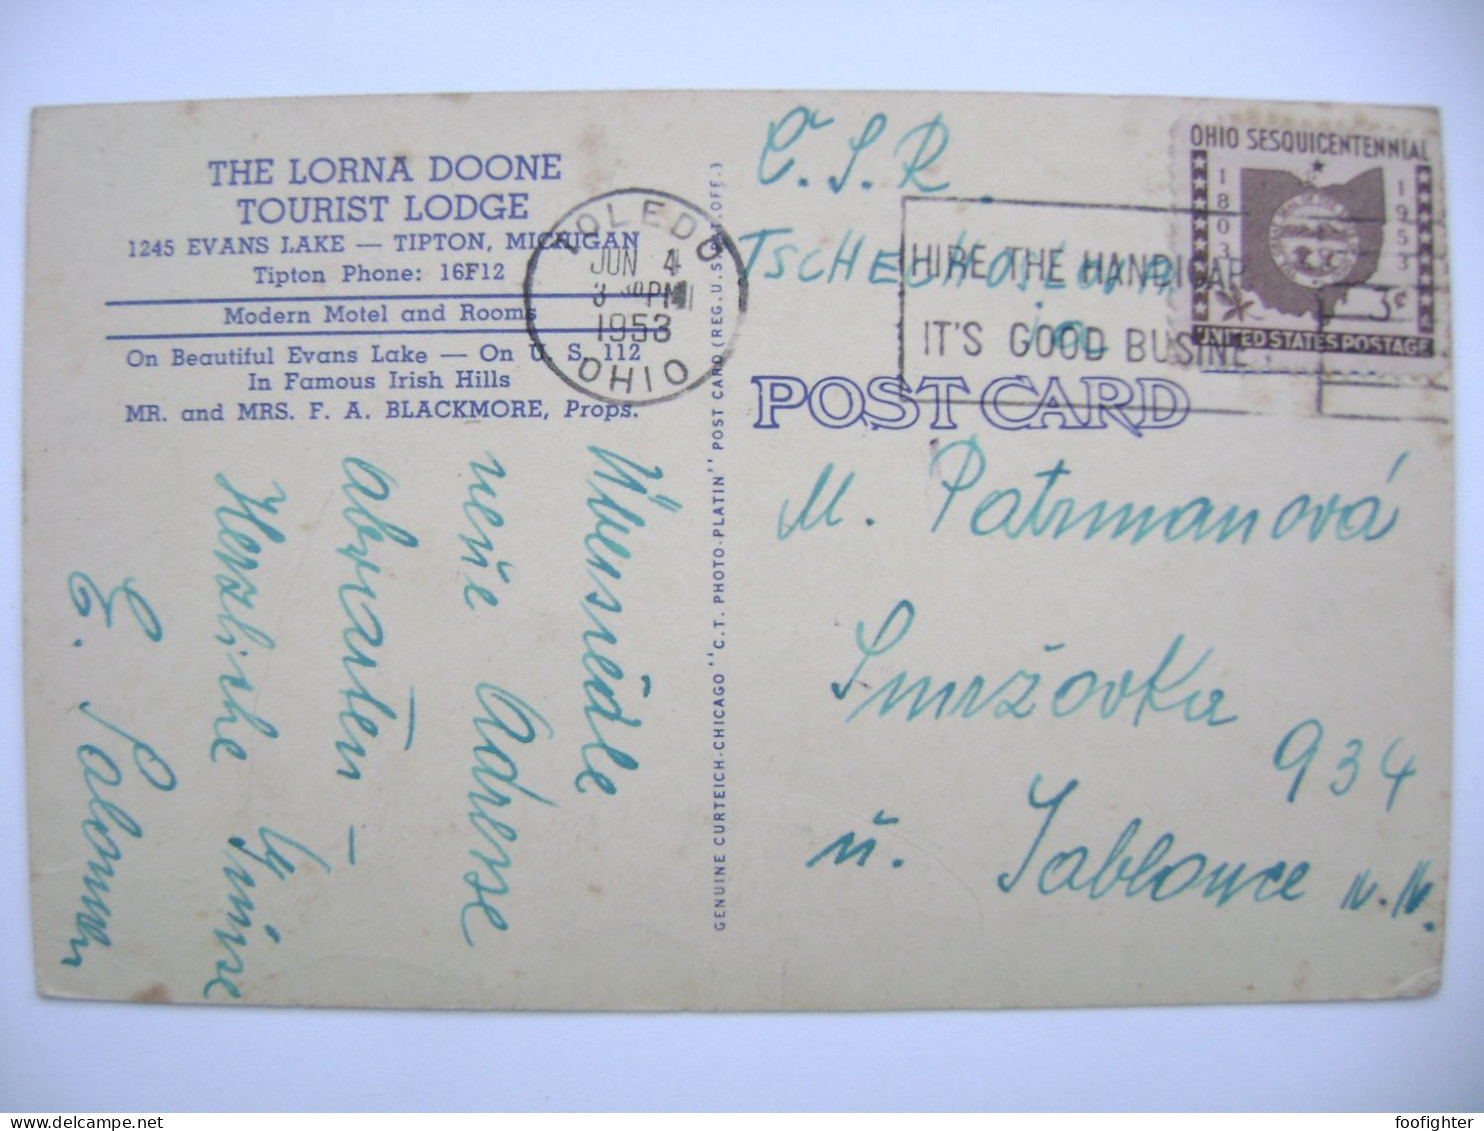 THE LORNA DOONE
TOURIST LODGE
1245 EVANS LAKE — TIPTON, MICHIGAN
Tipton Phone: 16F12
Modern Motel and Rooms
On Beautiful Evans Lake — On U. S. 112
In Famous Irish Hills
MR. and MRS. F. A. BLACKMORE, Props.
TOLEDO
JUN 4
3 30 PM
1953
OHIO
Übersiedle
neue Adresse
abwarten -
Herzliche Grüsse
E.
GENUINE CURTEICH-CHICAGO "C.T. PHOTO-PLATIN" POST CARD (REG. U.S. PAT. OFF.)
Č.S.R.
TSCHECHOSLOWA
ja
HIRE THE HANDICAP
IT'S GOOD BUSINE
OHIO SESQUICENTENNIAL
1803
1953
3¢
UNITED STATES POSTAGE
POST CARD
M. Patrmanová
Smržovka
934
u. Jablonce n. N.
foofighter